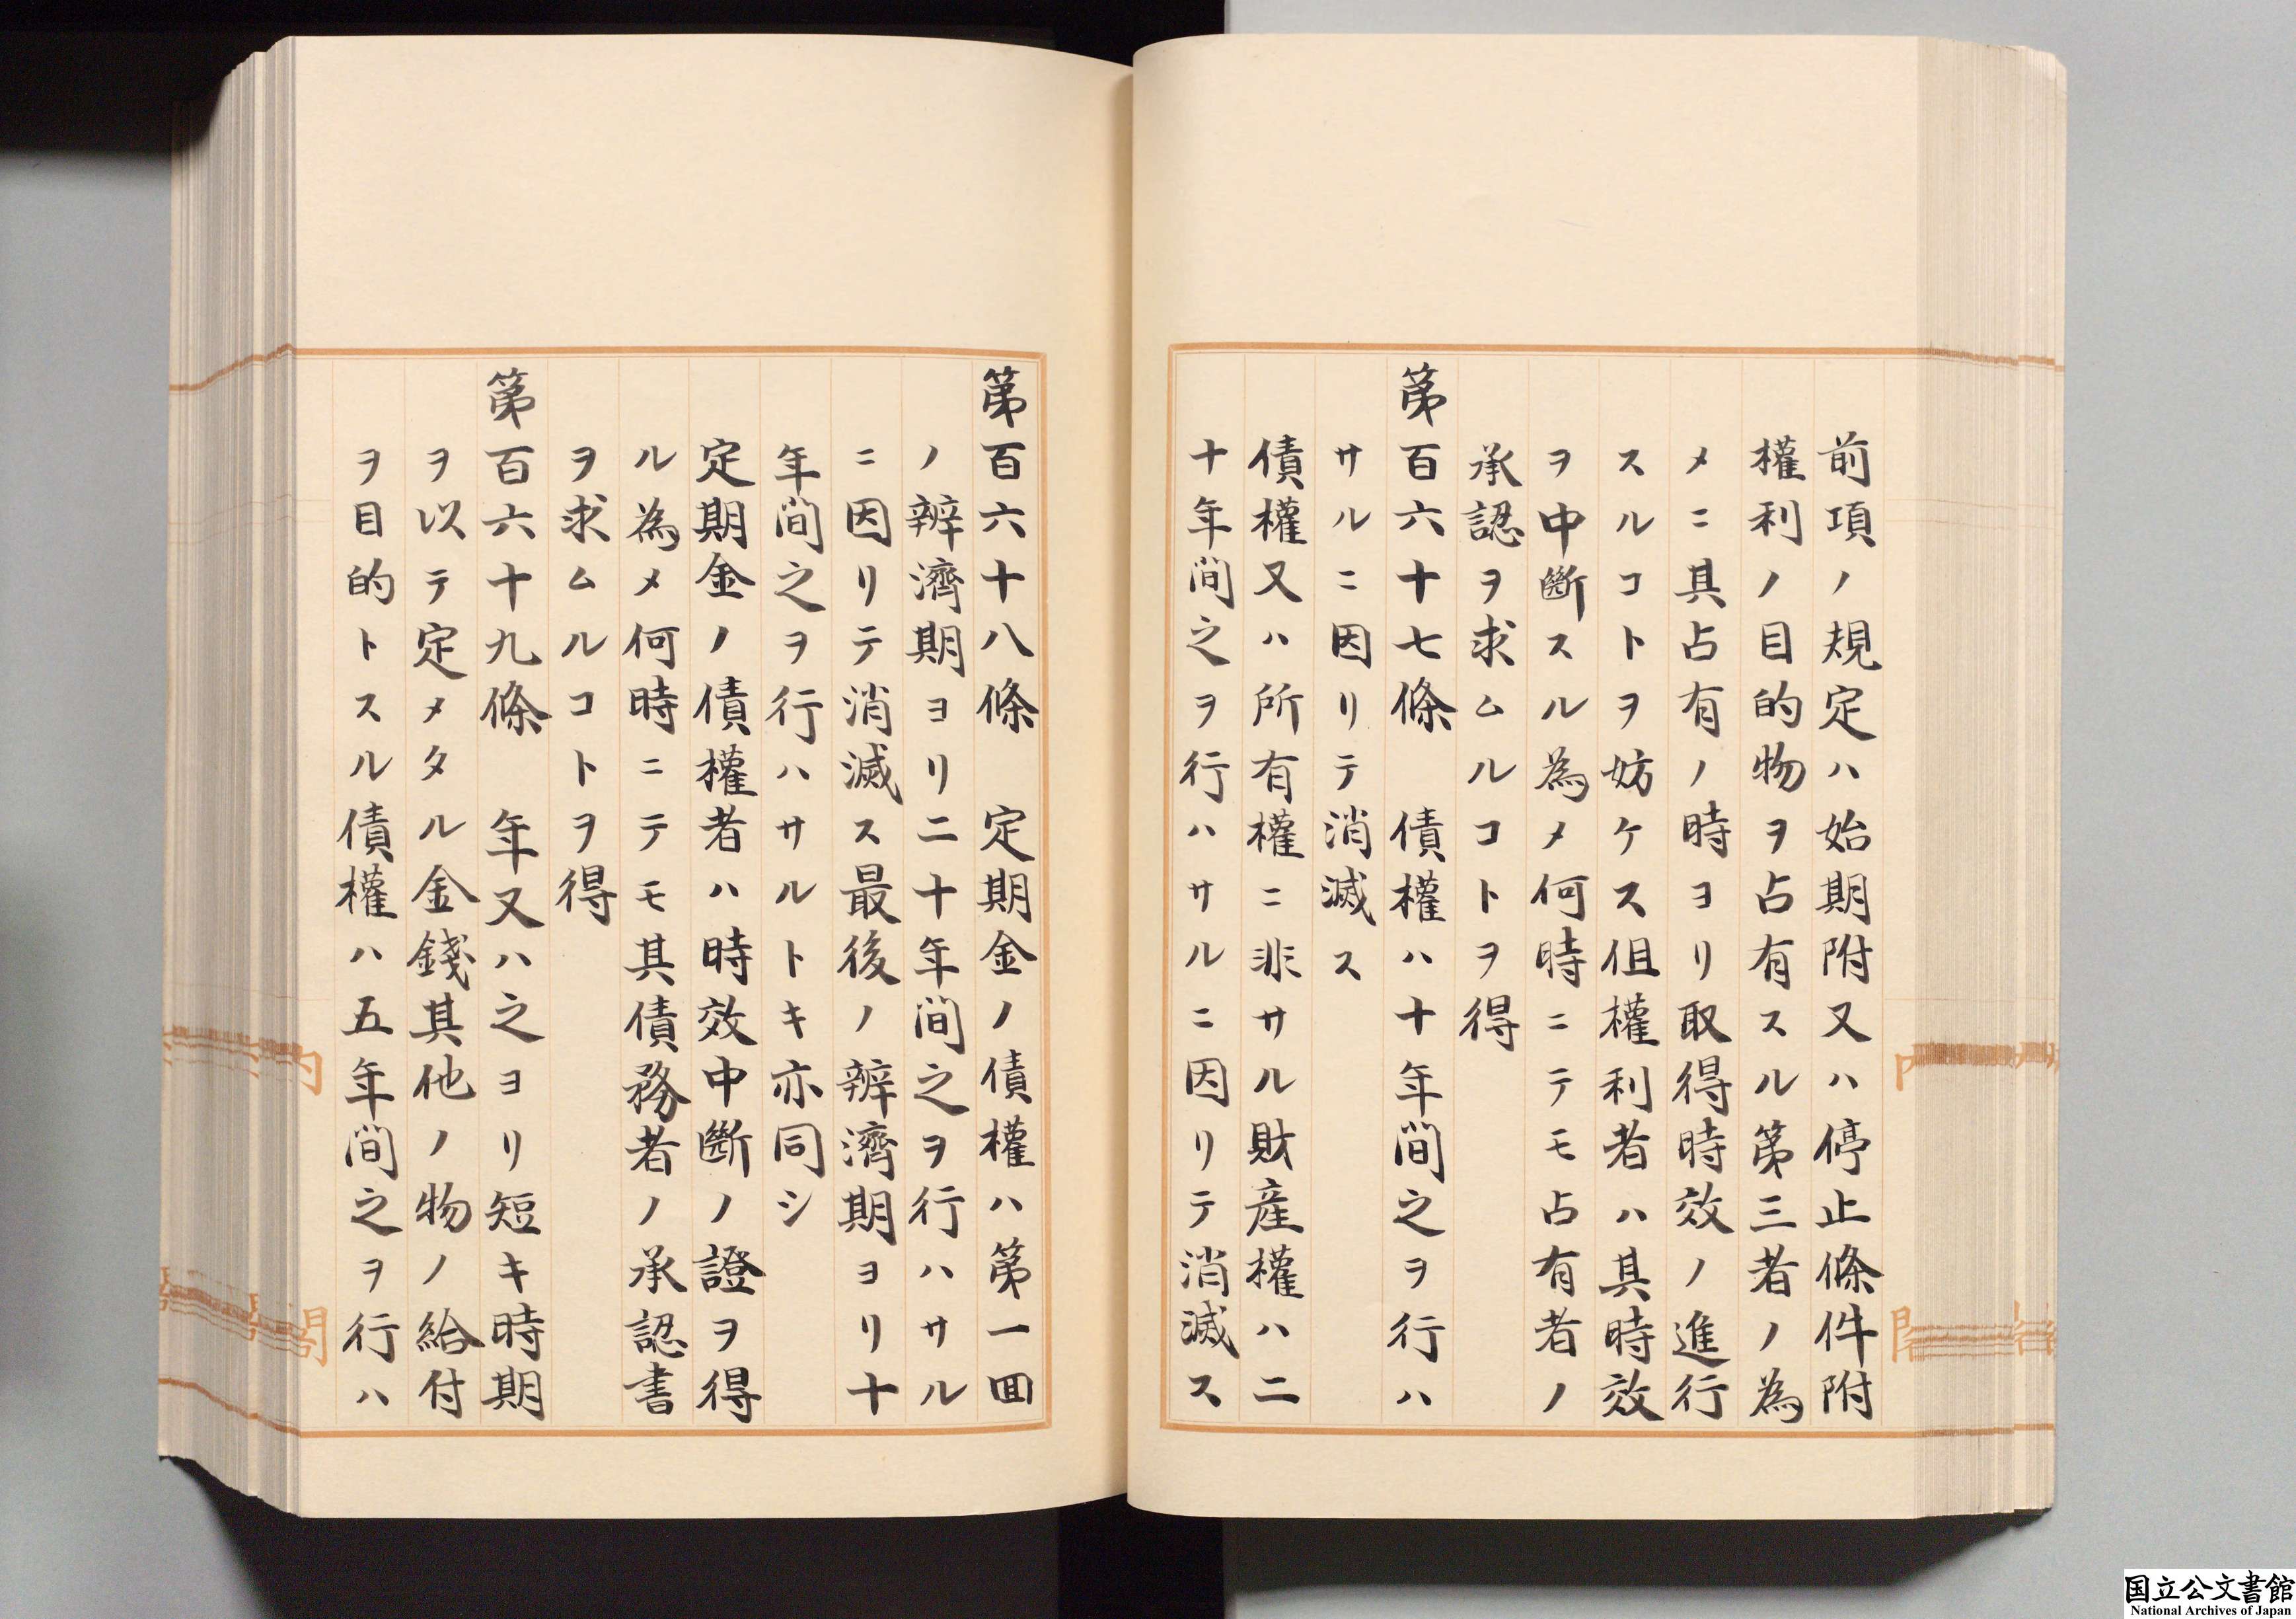 前項ノ規定ハ始期附又ハ停止條件附
權利ノ目的物ヲ占有スル第三者ノ為
メニ其占有ノ時ヨリ取得時效ノ進行
スルコトヲ妨ケス但權利者ハ其時效
ヲ中斷スル為メ何時ニテモ占有者ノ
承認ヲ求ムルコトヲ得
第百六十七條 債權ハ十年間之ヲ行ハ
サルニ因リテ消滅ス
債權又ハ所有權ニ非サル財産權ハ二
十年間之ヲ行ハサルニ因リテ消滅ス
第百六十八條 定期金ノ債權ハ第一回
ノ辨濟期ヨリ二十年間之ヲ行ハサル
ニ因リテ消滅ス最後ノ辨濟期ヨリ十
年間之ヲ行ハサルトキ亦同シ
定期金ノ債權者ハ時效中斷ノ證ヲ得
ル為メ何時ニテモ其債務者ノ承認書
ヲ求ムルコトヲ得
第百六十九條 年又ハ之ヨリ短キ時期
ヲ以テ定メタル金錢其他ノ物ノ給付
ヲ目的トスル債權ハ五年間之ヲ行ハ
内
閣
国立公文書館
National Archives of Japan